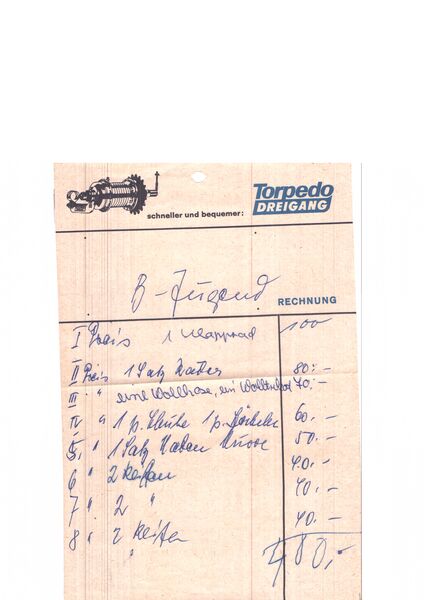 Torpedo
DREIGANG
schneller und bequemer:
B-Jugend
RECHNUNG
I Preis 1 Klapprad 100
II Preis 1 Satz 80.-
III " eine Wollhose, ein 70.-
IV " 1 p. 1 p. 60.-
5. " 1 Satz 50.-
6 " 2 Reifen 40.-
7 " 2 " 40.-
8 " 2 Reifen 40.-
"
480,-